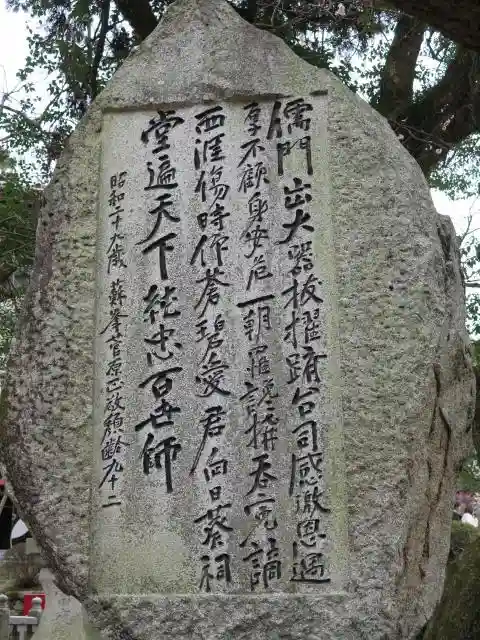 儒門出大器抜擢躋台司感激恩遇
厚不顧身安危一朝罹讒譖呑冤謫
西涯傷時仰蒼碧愛君向日葵祠
堂遍天下純忠百世師
昭和二十九歳 蘇峯菅原正敬頽齢九十二